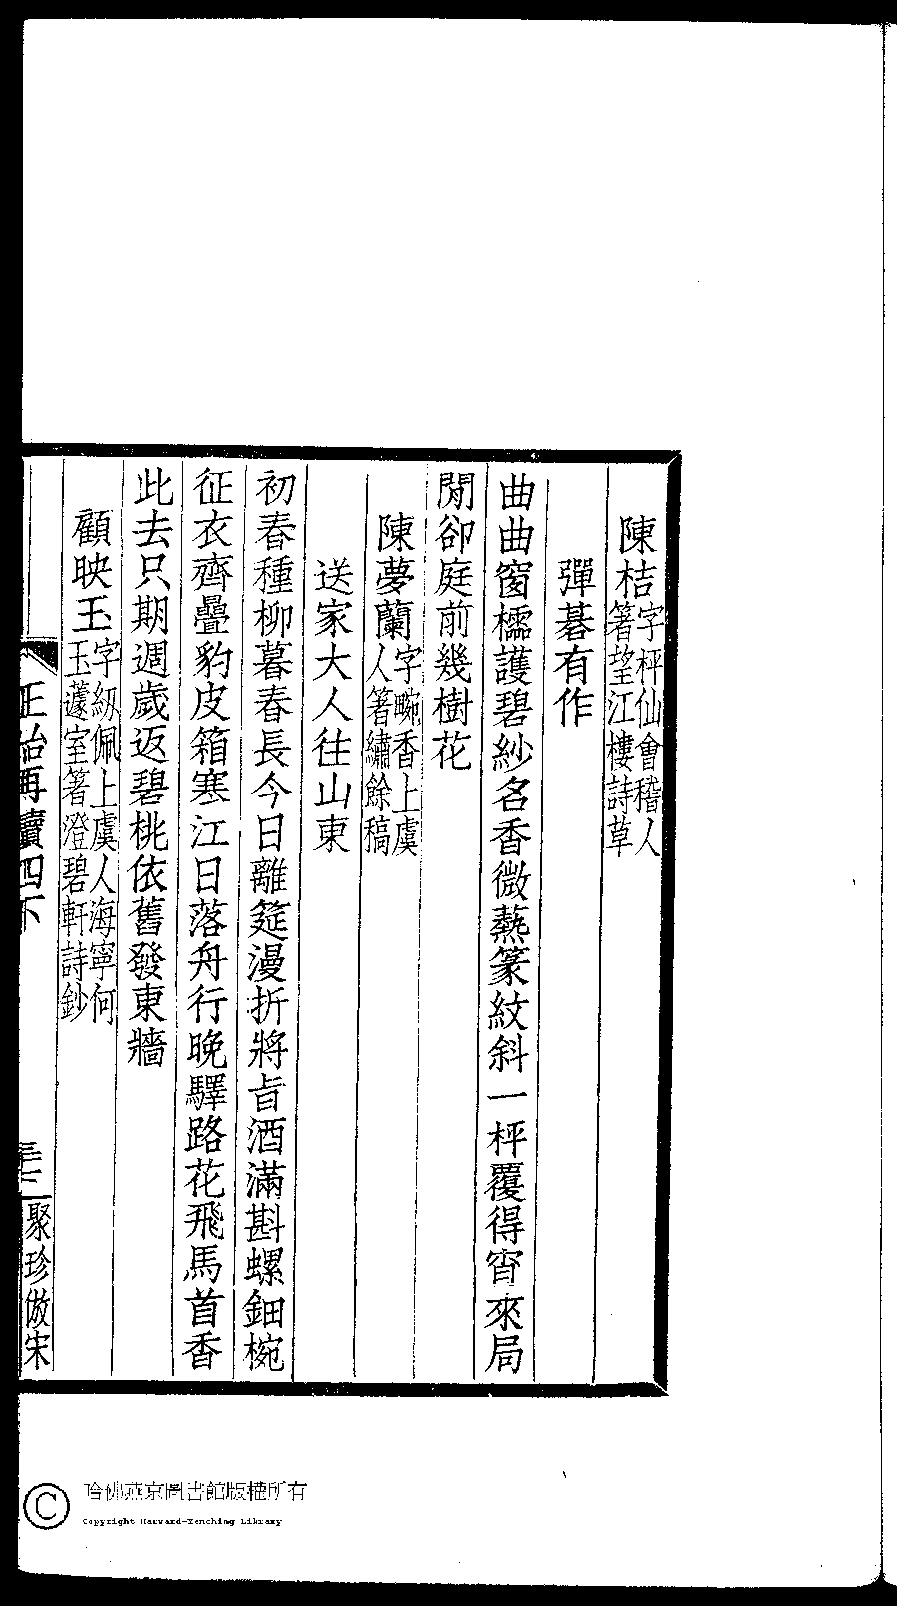 陳桔字枰仙會稽人著望江樓詩草
彈碁有作
曲曲窗櫺護碧紗名香微爇篆紋斜一枰覆得宵來局
閒卻庭前幾樹花
陳夢蘭字畹香上虞人著繡餘稿
送家大人往山東
初春種柳暮春長今日離筵漫折將旨酒滿斟螺鈿椀
征衣齊疊豹皮箱寒江日落舟行晚驛路花飛馬首香
此去只期週歲返碧桃依舊發東牆
顧映玉字紉佩上虞人海寧何玉藘室著澄碧軒詩鈔
正始再續四下
聚珍倣宋
哈佛燕京圖書館版權所有
Copyright Harvard-Yenching Library